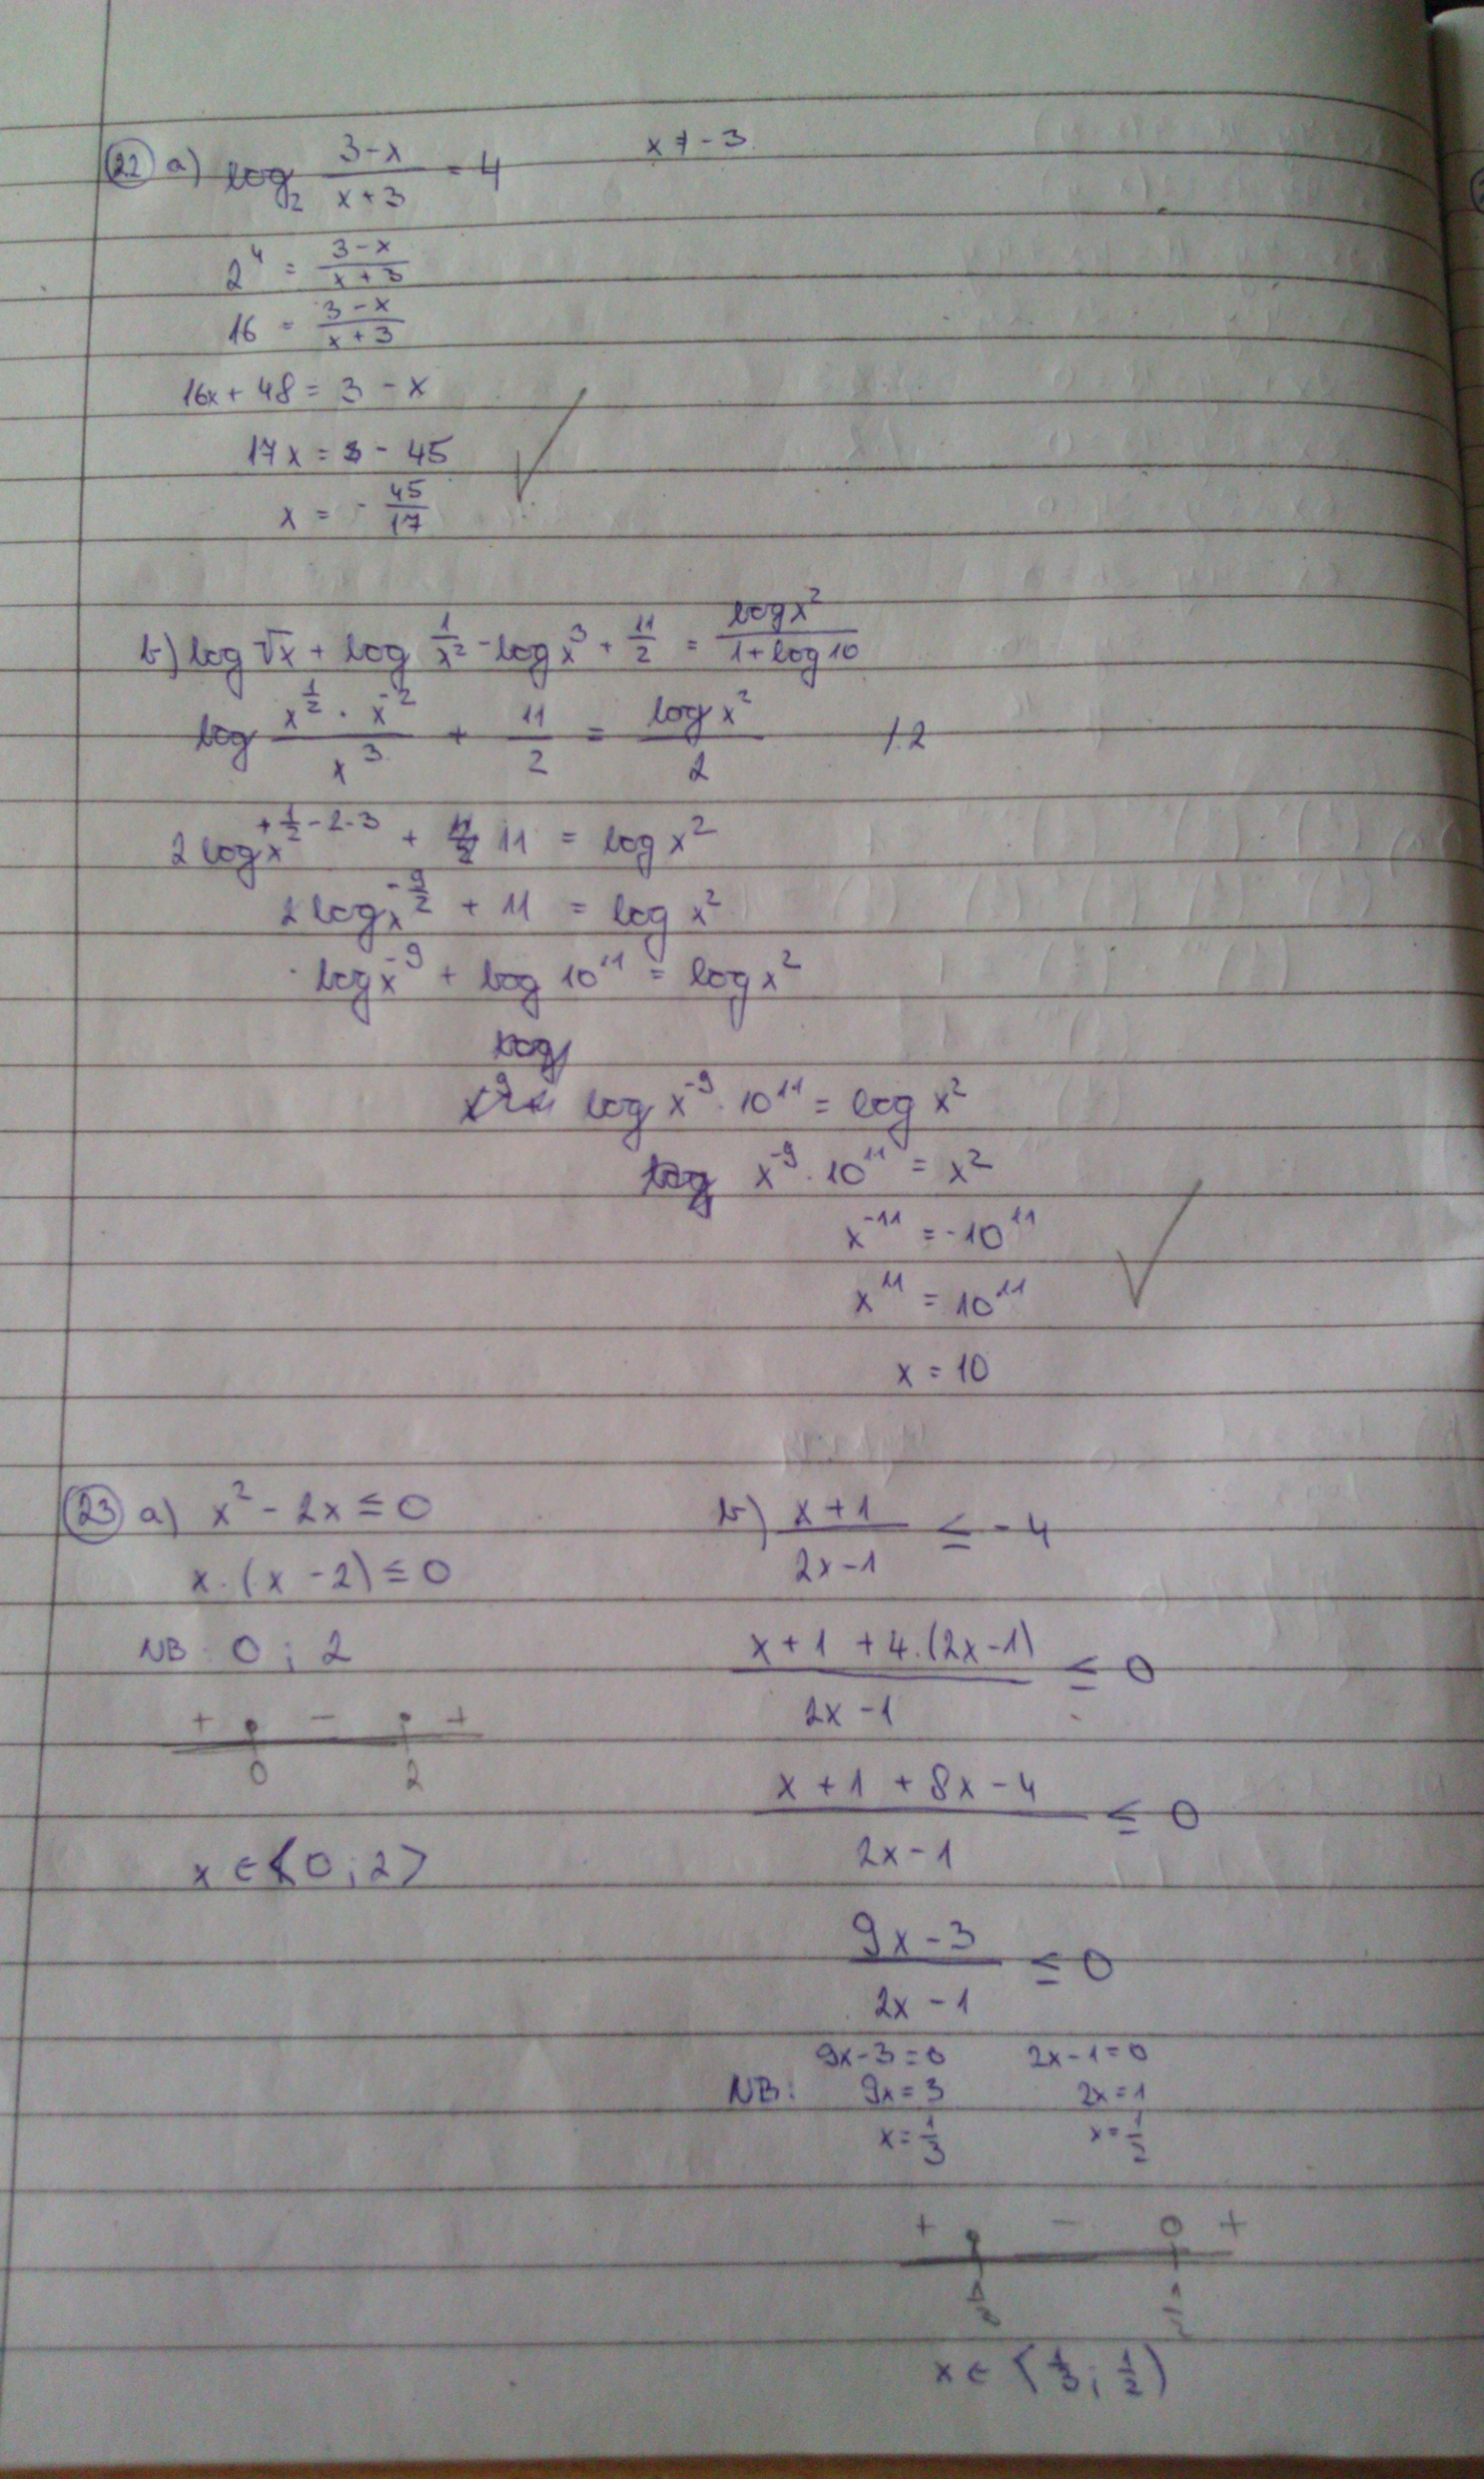 22 a) log₂ (3-x)/(x+3) = 4    x ≠ -3
2⁴ = (3-x)/(x+3)
16 = (3-x)/(x+3)
16x + 48 = 3 - x
17x = - 45
x = - 45/17
b) log √x + log 1/x² - log x³ + 11/2 = log x²/(1+log 10)
log (x^(1/2) · x^(-2))/x³ + 11/2 = log x²/2    /·2
2 log x^(+1/2-2-3) + 11 = log x²
2 log x^(-9/2) + 11 = log x²
log x⁻⁹ + log 10¹¹ = log x²
log
log x⁻⁹ · 10¹¹ = log x²
log x⁻⁹ · 10¹¹ = x²
x⁻¹¹ = -10¹¹
x¹¹ = 10¹¹
x = 10
23 a) x² - 2x ≤ 0
x · (x - 2) ≤ 0
NB: 0 ; 2
+ - +
0 2
x ∈ <0 ; 2>
b) (x+1)/(2x-1) ≤ -4
(x+1 + 4·(2x-1))/(2x-1) ≤ 0
(x+1 + 8x-4)/(2x-1) ≤ 0
(9x-3)/(2x-1) ≤ 0
9x-3=0    2x-1=0
NB: 9x=3    2x=1
x=1/3    x=1/2
+ - +
1/3 1/2
x ∈ <1/3 ; 1/2)